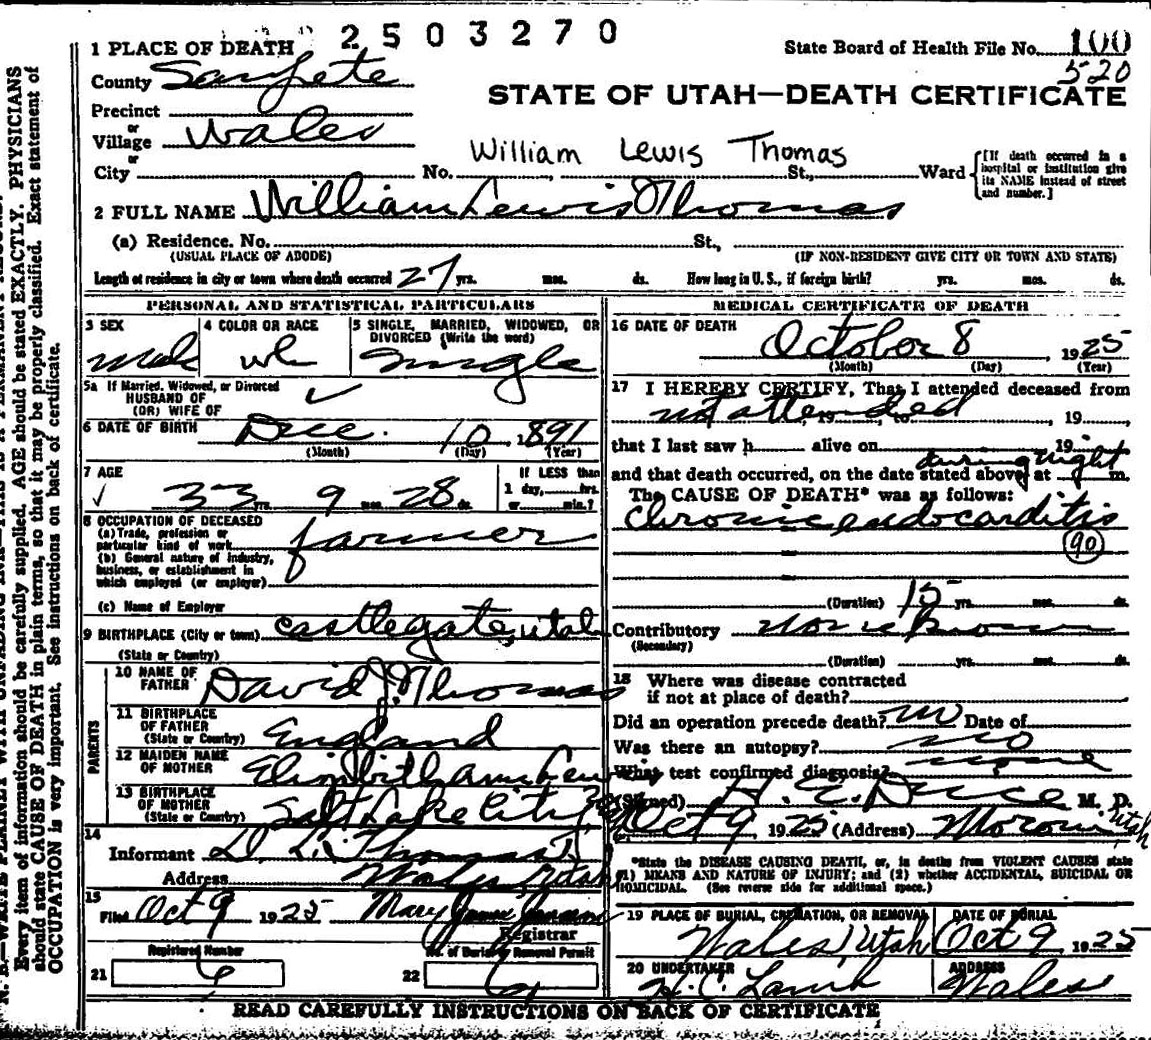 2503270
1 PLACE OF DEATH
State Board of Health File No. 100
520
County Sanpete
STATE OF UTAH—DEATH CERTIFICATE
Precinct
or
Village Wales
or
William Lewis Thomas
City No. St., Ward
[If death occurred in a hospital or institution give its NAME instead of street and number.]
2 FULL NAME William Lewis Thomas
(a) Residence. No. St.,
(USUAL PLACE OF ABODE) (IF NON-RESIDENT GIVE CITY OR TOWN AND STATE)
Length of residence in city or town where death occurred 27 yrs. mos. ds. How long in U. S., if foreign birth? yrs. mos. ds.
PERSONAL AND STATISTICAL PARTICULARS
3 SEX 4 COLOR OR RACE 5 SINGLE, MARRIED, WIDOWED, OR
DIVORCED (Write the word)
Male wh Single
5a If Married, Widowed, or Divorced
HUSBAND OF
(OR) WIFE OF
6 DATE OF BIRTH Dec. 10, 1891
(Month) (Day) (Year)
7 AGE If LESS than
1 day, hrs.
33 yrs. 9 mos. 28 ds. or min.?
8 OCCUPATION OF DECEASED
(a) Trade, profession or
particular kind of work farmer
(b) General nature of industry,
business, or establishment in
which employed (or employer)
(c) Name of Employer
9 BIRTHPLACE (City or town) Castlegate, Utah
(State or Country)
PARENTS
10 NAME OF
FATHER David J. Thomas
11 BIRTHPLACE
OF FATHER
(State or Country) England
12 MAIDEN NAME
OF MOTHER Elizabeth Ann Lewis
13 BIRTHPLACE
OF MOTHER
(State or Country) Salt Lake City
14
Informant D. L. Thomas
Address Wales, Utah
15
Filed Oct 9 1925 Mary Jane
Registrar
Registered Number No. of Burial or Removal Permit
21 6 22 6
MEDICAL CERTIFICATE OF DEATH
16 DATE OF DEATH
October 8, 1925
(Month) (Day) (Year)
17 I HEREBY CERTIFY, That I attended deceased from
not attended, 19
that I last saw h alive on 19
during night
and that death occurred, on the date stated above, at m.
The CAUSE OF DEATH* was as follows:
Chronic endocarditis
90
(Duration) 15 yrs. mos. ds.
Contributory None known
(Secondary)
(Duration) yrs. mos. ds.
18 Where was disease contracted
if not at place of death?
Did an operation precede death? no Date of
Was there an autopsy? no
What test confirmed diagnosis? none
(Signed) H. E. Dice M. D.
Oct 9 1925 (Address) Moroni Utah
*State the DISEASE CAUSING DEATH, or, in deaths from VIOLENT CAUSES state
(1) MEANS AND NATURE OF INJURY; and (2) whether ACCIDENTAL, SUICIDAL OR
HOMICIDAL. (See reverse side for additional space.)
19 PLACE OF BURIAL, CREMATION, OR REMOVAL DATE OF BURIAL
Wales, Utah Oct 9 1925
20 UNDERTAKER ADDRESS
H. C. Lamb Wales
READ CAREFULLY INSTRUCTIONS ON BACK OF CERTIFICATE
Every item of information should be carefully supplied. AGE should be stated EXACTLY. PHYSICIANS
should state CAUSE OF DEATH in plain terms, so that it may be properly classified. Exact statement of
OCCUPATION is very important. See instructions on back of certificate.